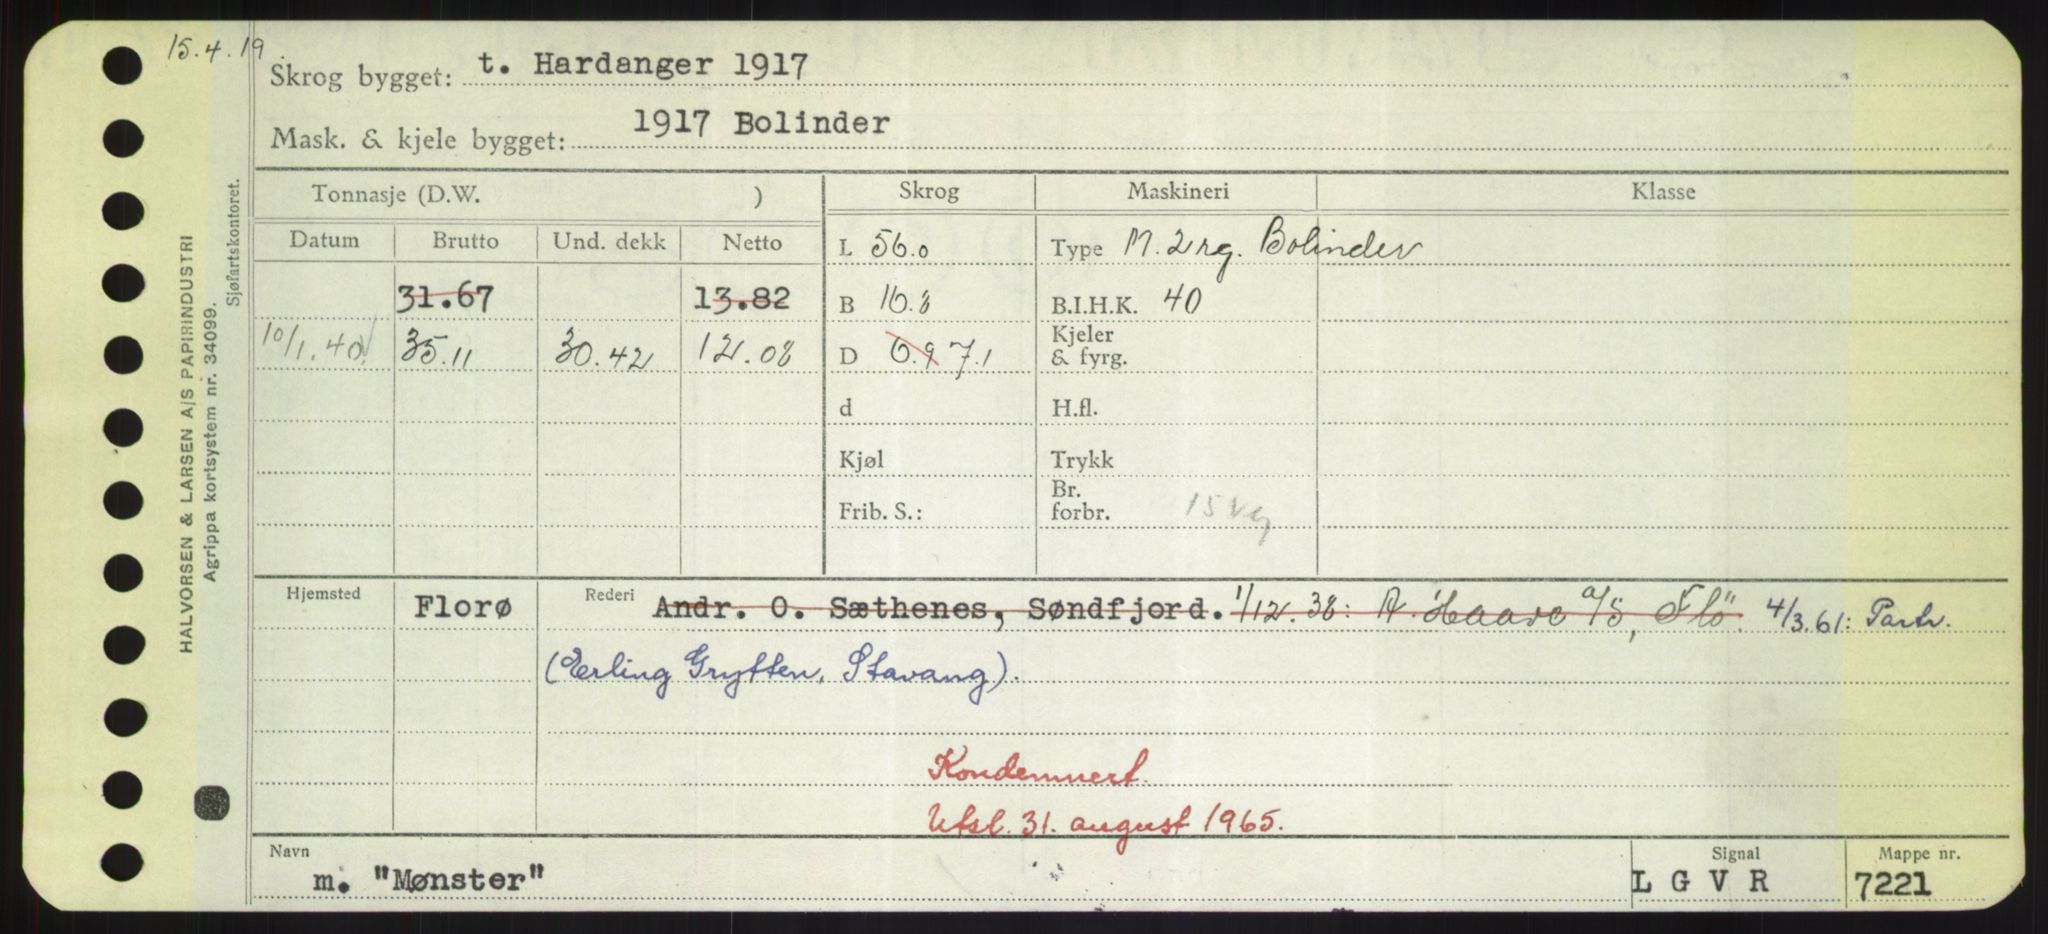 15.4.19.
Skrog bygget: t. Hardanger 1917
Mask. & kjele bygget: 1917 Bolinder
HALVORSEN & LARSEN A/S PAPIRINDUSTRI
Agrippa kortsystem nr. 34099.
Sjøfartskontoret.
Tonnasje (D.W. ) Skrog Maskineri Klasse
Datum Brutto Und. dekk Netto L 56.0 Type M. 2 rg. Bolinder
31.67 13.82 B 16.8 B.I.H.K. 40
10/1.40 35.11 30.42 12.08 D 6.9 7.1 Kjeler & fyrg.
d H.fl.
Kjøl Trykk
Frib. S.: Br. forbr.
Hjemsted Florø Rederi Andr. O. Sæthenes, Søndfjord. 1/12.38: A. Haave a/s, Flö. 4/3.61: Partr.
(Erling Grytten, Stavang).
Kondemnert.
Utsl. 31. august 1965.
Navn Signal Mappe nr.
m. "Mønster" L G V R 7221